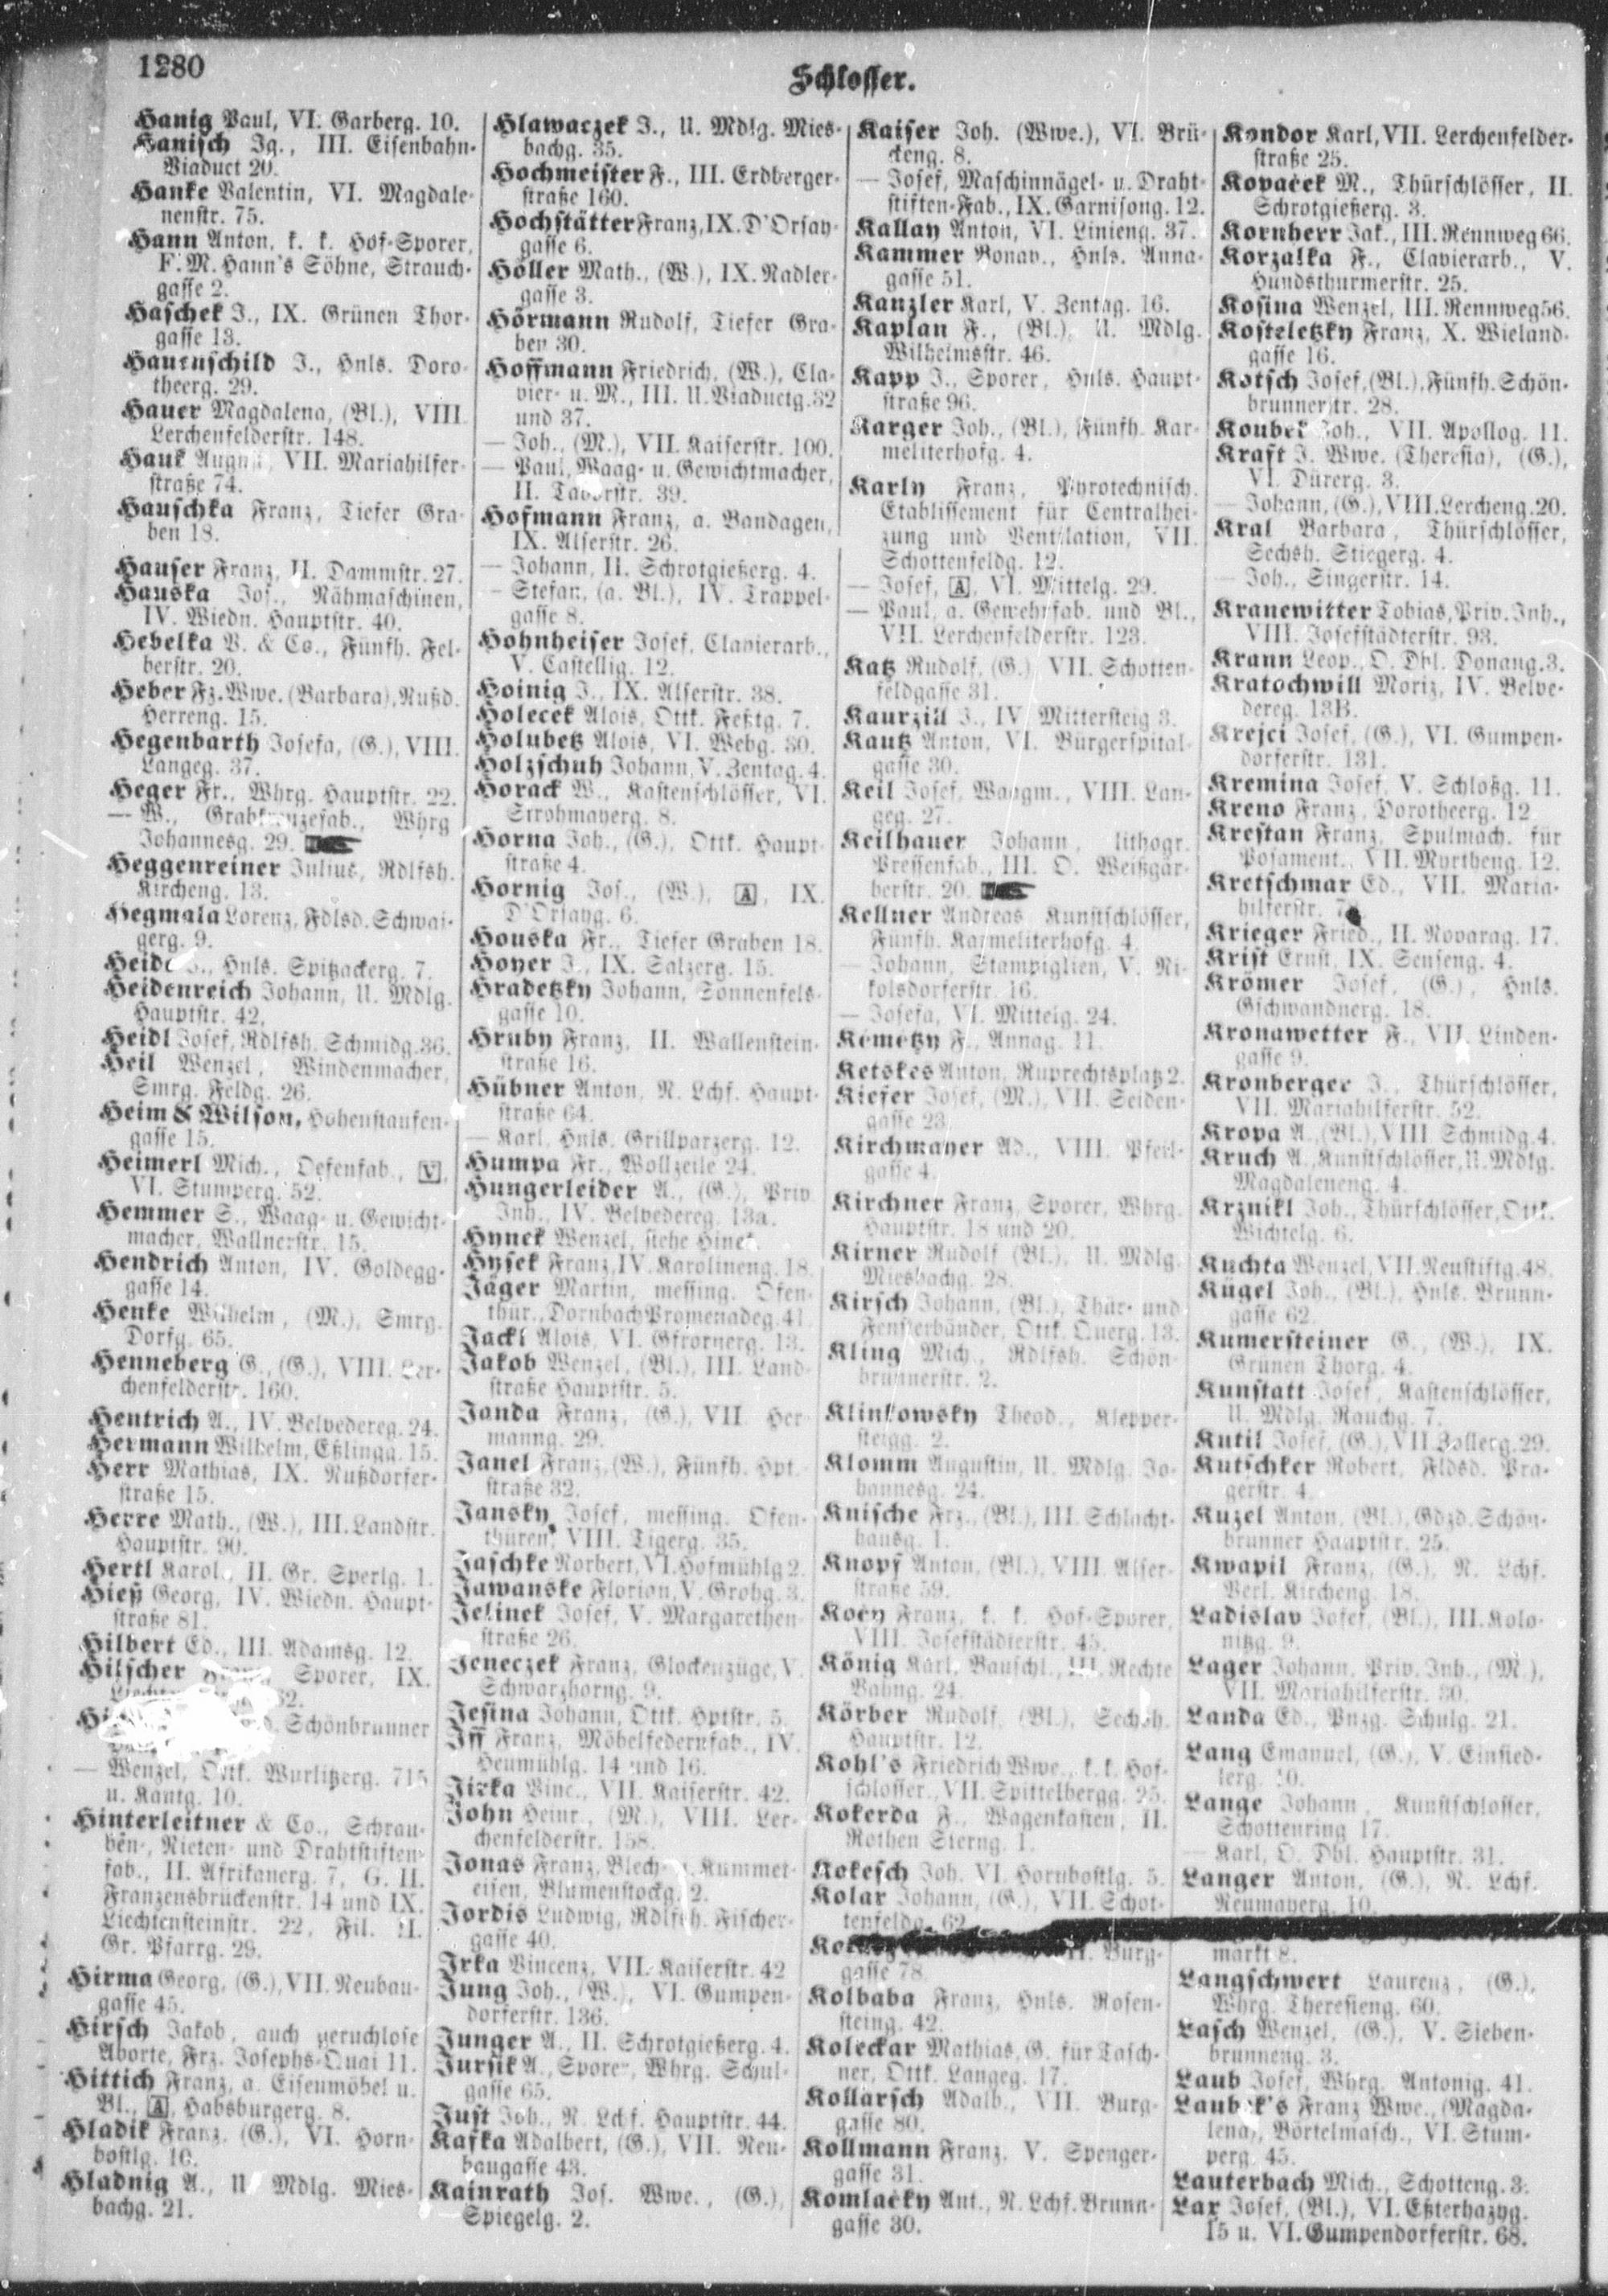 1280
Schlosser.
Hanig Paul, VI. Garberg. 10.
Hanisch Ig., III. Eisenbahn-
Viaduct 20.
Hanke Valentin, VI. Magdale-
nenstr. 75.
Hann Anton, k. k. Hof-Sporer,
F. M. Hann's Söhne, Strauch-
gasse 2.
Haschek J., IX. Grünen Thor-
gasse 13.
Hauenschild J., Hnls. Doro-
theerg. 29.
Hauer Magdalena, (Bl.), VIII.
Lerchenfelderstr. 148.
Hauk August, VII. Mariahilfer-
straße 74.
Hauschka Franz, Tiefer Gra-
ben 18.
Hauser Franz, II. Dammstr. 27.
Hauska Jos., Nähmaschinen,
IV. Wiedn. Hauptstr. 40.
Hebelka V. & Co., Fünfh. Fel-
berstr. 20.
Heber Fz. Wwe. (Barbara), Nußd.
Herreng. 15.
Hegenbarth Josefa, (G.), VIII.
Langeg. 37.
Heger Fr., Whrg. Hauptstr. 22.
— W., Grabkreuzefab., Whrg
Johannesg. 29.
Heggenreiner Julius, Rdlfsh.
Kircheng. 13.
Hegmala Lorenz, Fdlsd. Schwai-
gerg. 9.
Hnls. Spitzackerg. 7.
Heidenreich Johann, U. Mdlg.
Hauptstr. 42.
Heidl Josef, Rdlfsh. Schmidg. 36.
Heil Wenzel, Windenmacher,
Smrg. Feldg. 26.
Heim & Wilson, Hohenstaufen-
gasse 15.
Heimerl Mich., Oefenfab., V,
VI. Stumperg. 52.
Hemmer S., Waag- u. Gewicht-
macher, Wallnerstr. 15.
Hendrich Anton, IV. Goldegg-
gasse 14.
Henke Wilhelm, (M.), Smrg.
Dorfg. 65.
Henneberg G., (G.), VIII. Ler-
chenfelderstr. 160.
Hentrich A., IV. Belvedereg. 24.
Hermann Wilhelm, Eßlingg. 15.
Herr Mathias, IX. Nußdorfer-
straße 15.
Herre Math., (W.), III. Landstr.
Hauptstr. 90.
Hertl Karol., II. Gr. Sperlg. 1.
Hieß Georg, IV. Wiedn. Haupt-
straße 81.
Hilbert Ed., III. Adamsg. 12.
Hilscher Sporer, IX.
Schönbrunner
— Wenzel, Ottk. Wurlitzerg. 715
u. Kantg. 10.
Hinterleitner & Co., Schrau-
ben-, Nieten- und Drahtstiften-
fab., II. Afrikanerg. 7, G. II.
Franzensbrückenstr. 14 und IX.
Liechtensteinstr. 22, Fil. II.
Gr. Pfarrg. 29.
Hirma Georg, (G.), VII. Neubau-
gasse 45.
Hirsch Jakob, auch geruchlose
Aborte, Frz. Josephs-Quai 11.
Hittich Franz, a. Eisenmöbel u.
Bl., A, Habsburgerg. 8.
Hladik Franz, (G.), VI. Horn-
bostlg. 10.
Hladnig A., U. Mdlg. Mies-
bachg. 21.
Hlawaczek J., U. Mdlg. Mies-
bachg. 35.
Hochmeister F., III. Erdberger-
straße 160.
Hochstätter Franz, IX. D'Orsay-
gasse 6.
Höller Math., (W.), IX. Nadler-
gasse 3.
Hörmann Rudolf, Tiefer Gra-
ben 30.
Hoffmann Friedrich, (W.), Cla-
vier- u. M., III. U. Viaductg. 32
und 37.
— Joh., (M.), VII. Kaiserstr. 100.
— Paul, Waag- u. Gewichtmacher,
II. Taborstr. 39.
Hofmann Franz, a. Bandagen,
IX. Alserstr. 26.
— Johann, II. Schrotgießerg. 4.
— Stefan, (a. Bl.), IV. Trappel-
gasse 8.
Hohnheiser Josef, Clavierarb.,
V. Castellig. 12.
Hoinig J., IX. Alserstr. 38.
Holecek Alois, Ottk. Feßtg. 7.
Holubetz Alois, VI. Webg. 30.
Holzschuh Johann, V. Zentag. 4.
Horack W., Kastenschlösser, VI.
Strohmayerg. 8.
Horna Joh., (G.), Ottk. Haupt-
straße 4.
Hornig Jos., (W.), A, IX.
D'Orsayg. 6.
Houska Fr., Tiefer Graben 18.
Hoyer J., IX. Salzerg. 15.
Hradetzky Johann, Sonnenfels-
gasse 10.
Hruby Franz, II. Wallenstein-
straße 16.
Hübner Anton, N. Lchf. Haupt-
straße 64.
— Karl, Hnls. Grillparzerg. 12.
Humpa Fr., Wollzeile 24.
Hungerleider A., (G.), Priv.
Inh., IV. Belvedereg. 13a.
Hynek Wenzel, siehe Hinek.
Hysek Franz, IV. Karolineng. 18.
Jäger Martin, messing. Ofen-
thür., Dornbach Promenadeg. 41.
Jackl Alois, VI. Gfrornerg. 13.
Jakob Wenzel, (Bl.), III. Land-
straße Hauptstr. 5.
Janda Franz, (G.), VII. Her-
manng. 29.
Janel Franz, (W.), Fünfh. Hpt.-
straße 32.
Jansky Josef, messing. Ofen-
thüren, VIII. Tigerg. 35.
Jaschke Norbert, VI. Hofmühlg 2.
Jawanske Florian, V. Grohg. 3.
Jelinek Josef, V. Margarethen-
straße 26.
Jeneczek Franz, Glockenzüge, V.
Schwarzhorng. 9.
Jesina Johann, Ottk. Hptstr. 5.
Iff Franz, Möbelfedernfab., IV.
Heumühlg. 14 und 16.
Jirka Vinc., VII. Kaiserstr. 42.
John Heinr., (M.), VIII. Ler-
chenfelderstr. 158.
Jonas Franz, Blech- u. Kummet-
eisen, Blumenstockg. 2.
Jordis Ludwig, Rdlfsh. Fischer-
gasse 40.
Irka Vincenz, VII. Kaiserstr. 42
Jung Joh., (W.), VI. Gumpen-
dorferstr. 136.
Junger A., II. Schrotgießerg. 4.
Jursik A., Sporer, Whrg. Schul-
gasse 65.
Just Joh., N. Lchf. Hauptstr. 44.
Kafka Adalbert, (G.), VII. Neu-
baugasse 43.
Kainrath Jos. Wwe., (G.),
Spiegelg. 2.
Kaiser Joh. (Wwe.), VI. Brü-
ckeng. 8.
— Josef, Maschinnägel- u. Draht-
stiften-Fab., IX. Garnisong. 12.
Kallay Anton, VI. Linieng. 37.
Kammer Bonav., Hnls. Anna-
gasse 51.
Kanzler Karl, V. Zentag. 16.
Kaplan F., (Bl.), U. Mdlg.
Wilhelmsstr. 46.
Kapp J., Sporer, Hnls. Haupt-
straße 96.
Karger Joh., (Bl.), Fünfh. Kar-
meliterhofg. 4.
Karly Franz, Pyrotechnisch.
Etablissement für Centralhei-
zung und Ventilation, VII.
Schottenfeldg. 12.
— Josef, A, VI. Mittelg. 29.
— Paul, a. Gewehrfab. und Bl.,
VII. Lerchenfelderstr. 123.
Katz Rudolf, (G.), VII. Schotten-
feldgasse 31.
Kaurzill J., IV. Mittersteig 3.
Kautz Anton, VI. Bürgerspital-
gasse 30.
Keil Josef, Waagm., VIII. Lan-
geg. 27.
Keilhauer Johann, lithogr.
Pressenfab., III. O. Weißgär-
berstr. 20.
Kellner Andreas, Kunstschlösser,
Fünfh. Karmeliterhofg. 4.
— Johann, Stampiglien, V. Ni-
kolsdorferstr. 16.
— Josefa, VI. Mittelg. 24.
Kemetzy F., Annag. 11.
Ketskes Anton, Ruprechtsplatz 2.
Kiefer Josef, (M.), VII. Seiden-
gasse 23.
Kirchmayer Ad., VIII. Pfeil-
gasse 4.
Kirchner Franz, Sporer, Whrg.
Hauptstr. 18 und 20.
Kirner Rudolf (Bl.), U. Mdlg.
Miesbachg. 28.
Kirsch Johann, (Bl.), Thür- und
Fensterbänder, Ottk. Querg. 13.
Kling Mich., Rdlfsh. Schön-
brunnerstr. 2.
Klinkowsky Theod., Klepper-
steigg. 2.
Klomm Augustin, U. Mdlg. Jo-
hannesg. 24.
Knische Frz., (Bl.), III. Schlacht-
hausg. 1.
Knopf Anton, (Bl.), VIII. Alser-
straße 59.
Koey Franz, k. k. Hof-Sporer,
VIII. Josefstädterstr. 45.
König Karl, Bauschl., III. Rechte
Bahng. 24.
Körber Rudolf, (Bl.), Sechsh.
Hauptstr. 12.
Kohl's Friedrich Wwe., k. k. Hof-
schlosser, VII. Spittelbergg. 25.
Kokerda F., Wagenkasten, II.
Rothen Sterng. 1.
Kokesch Joh. VI. Hornbostlg. 5.
Kolar Johann, (G.), VII. Schot-
tenfeldg. 62.
Burg-
gasse 78.
Kolbaba Franz, Hnls. Rosen-
steing. 42.
Koleckar Mathias, G. für Tasch-
ner, Ottk. Langeg. 17.
Kollarsch Adalb., VII. Burg-
gasse 80.
Kollmann Franz, V. Spenger-
gasse 31.
Komlačky Ant., N. Lchf. Brunn-
gasse 30.
Kondor Karl, VII. Lerchenfelder-
straße 25.
Kovaček M., Thürschlösser, II.
Schrotgießerg. 3.
Kornherr Jak., III. Rennweg 66.
Korzalka F., Clavierarb., V.
Hundsthurmerstr. 25.
Kosina Wenzel, III. Rennweg 56.
Kosteletzky Franz, X. Wieland-
gasse 16.
Kotsch Josef, (Bl.), Fünfh. Schön-
brunnerstr. 28.
Koubek Joh., VII. Apollog. 11.
Kraft J. Wwe. (Theresia), (G.),
VI. Dürerg. 3.
— Johann, (G.), VIII. Lercheng. 20.
Kral Barbara, Thürschlösser,
Sechsh. Stiegerg. 4.
— Joh., Singerstr. 14.
Kranewitter Tobias, Priv. Inh.,
VIII. Josefstädterstr. 93.
Krann Leop., O. Dbl. Donaug. 3.
Kratochwill Moriz, IV. Belve-
dereg. 13B.
Krejci Josef, (G.), VI. Gumpen-
dorferstr. 131.
Kremina Josef, V. Schloßg. 11.
Kreno Franz, Dorotheerg. 12
Krestan Franz, Spulmach. für
Posament., VII. Myrtheng. 12.
Kretschmar Ed., VII. Maria-
hilferstr.
Krieger Fried., II. Novarag. 17.
Krist Ernst, IX. Senseng. 4.
Krömer Josef, (G.), Hnls.
Gschwandnerg. 18.
Kronawetter F., VII. Linden-
gasse 9.
Kronberger J., Thürschlösser,
VII. Mariahilferstr. 52.
Kropa A., (Bl.), VIII. Schmidg. 4.
Kruch A., Kunstschlösser, U. Mdlg.
Magdaleneng. 4.
Krznikl Joh., Thürschlösser, Ottk.
Wichtelg. 6.
Kuchta Wenzel, VII. Neustiftg. 48.
Kügel Joh., (Bl.), Hnls. Brunn-
gasse 62.
Kumersteiner G., (W.), IX.
Grünen Thorg. 4.
Kunstatt Josef, Kastenschlösser,
U. Mdlg. Rauchg. 7.
Kutil Josef, (G.), VII. Zollerg. 29.
Kutschker Robert, Fldsd. Pra-
gerstr. 4.
Kuzel Anton, (Bl.), Gdzd. Schön-
brunner Hauptstr. 25.
Kwapil Franz, (G.), N. Lchf.
Verl. Kircheng. 18.
Ladislav Josef, (Bl.), III. Kolo-
nitzg. 9.
Lager Johann, Priv. Inh., (M.),
VII. Mariahilferstr. 30.
Landa Ed., Pnzg. Schulg. 21.
Lang Emanuel, (G.), V. Einsied-
lerg.
Lange Johann, Kunstschlosser,
Schottenring 17.
— Karl, O. Dbl. Hauptstr. 31.
Langer Anton, (G.), N. Lchf.
Neumayerg. 10.
markt 8.
Langschwert Laurenz, (G.),
Whrg. Theresieng. 60.
Lasch Wenzel, (G.), V. Sieben-
brunneng. 3.
Laub Josef, Whrg. Antonig. 41.
Laubek's Franz Wwe., (Magda-
lena), Börtelmasch., VI. Stum-
perg. 45.
Lauterbach Mich., Schotteng. 3.
Lax Josef, (Bl.), VI. Eßterhazyg.
15 u. VI. Gumpendorferstr. 68.